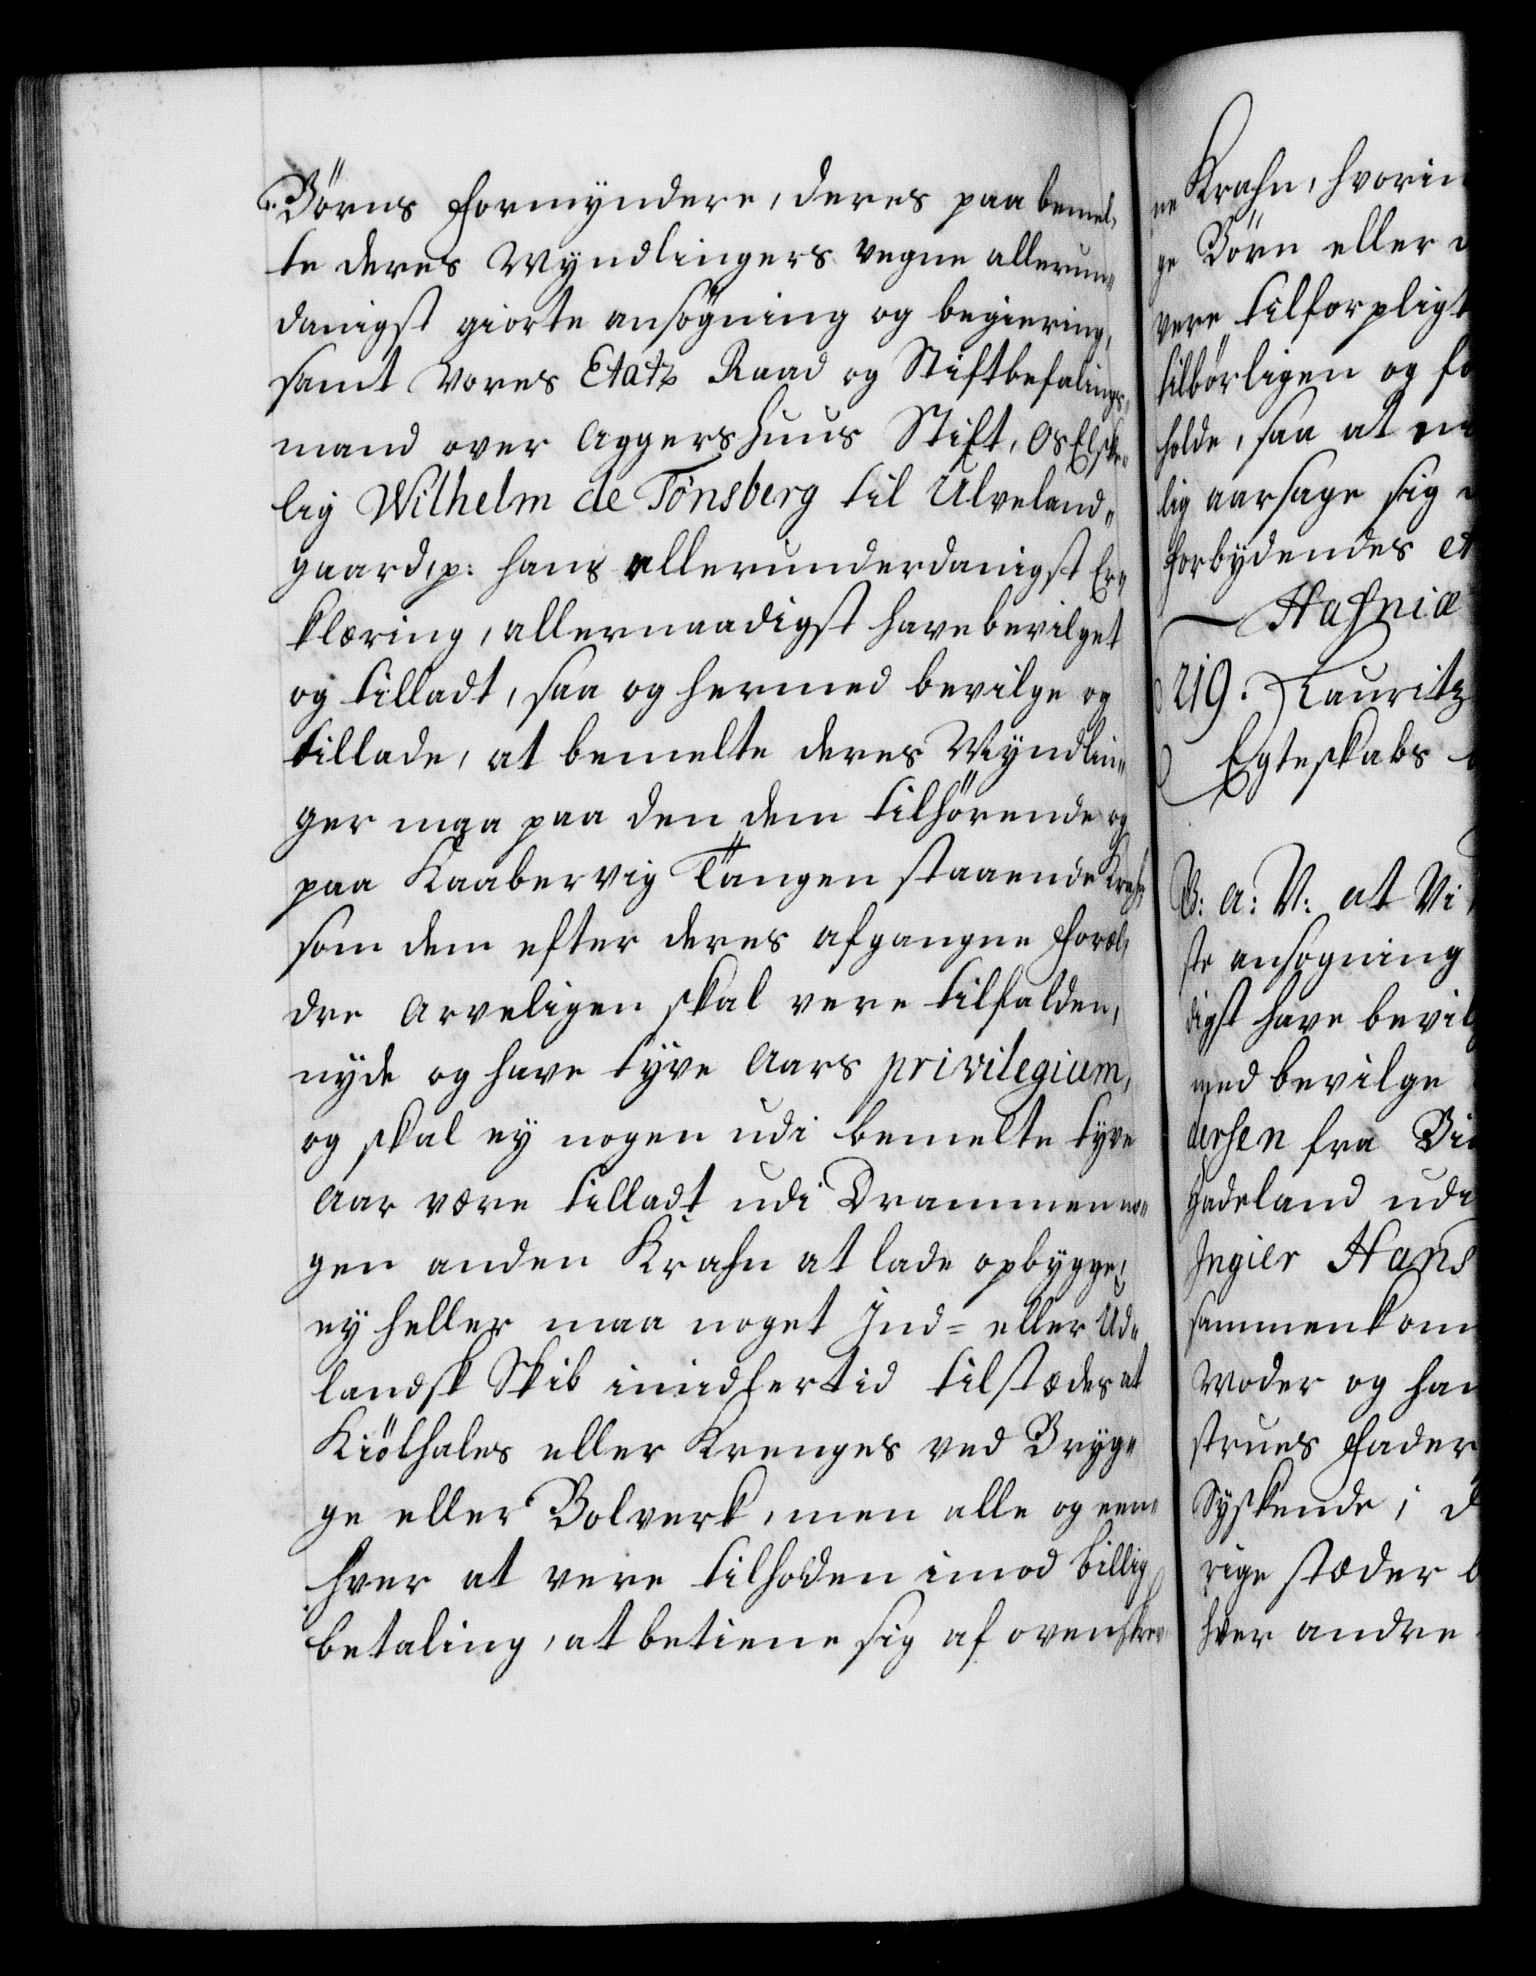 Börns Formyndere, deres paa bemel,
te deres Myndlingers vegne allerun„
danigst giorte ansögning og begiering,
samt Vores Etatz Raad og Stiftbefalings„
mand over Aggershuus Stift, Os Elske„
lig Wilhelm de Tönsberg til Ulveland„
gaard, p: hans allerunderdanigst Er„
klæring, allernaadigst have bevilget
og tilladt, saa og hermed bevilge og
tillade, at bemelte deres Myndlin„
ger maa paa den dem tilhörende og
paa Kaabervig Tangen staaende Krahn,
som dem efter deres afgangne Foræl,
dre Arveligen skal vere tilfalden,
nyde og have tyve Aars privilegium,
og skal ey nogen udi bemelte tyve
Aar være tilladt udi Drammen no„
gen anden Krahn at lade opbygge,
ey heller maa noget Ind= eller Ud„
landsk Skib imidlertid tilstædes at
Kiölhales eller Krenges ved Bryg„
ge eller Bolverk, men alle og een„
hver at vere tilholden imod billig
betaling, at betiene sig af ovenskrev
ne Krahn, hvorim
ge Börn eller
vere tilforpligt
tilbörligen og fo
holde, saa at
lig aarsage sig
Forbydendes et
Hafniæ
219. Lauritz
Egteskabs
B: A: V: at Vi
ste ansögning
digst have bevilg
med bevilge
dersen fra
Hadeland udi
Ingier Hans
sammenkom
Moder og han
strues Fader
Syskende;
rige stæder
hver andre